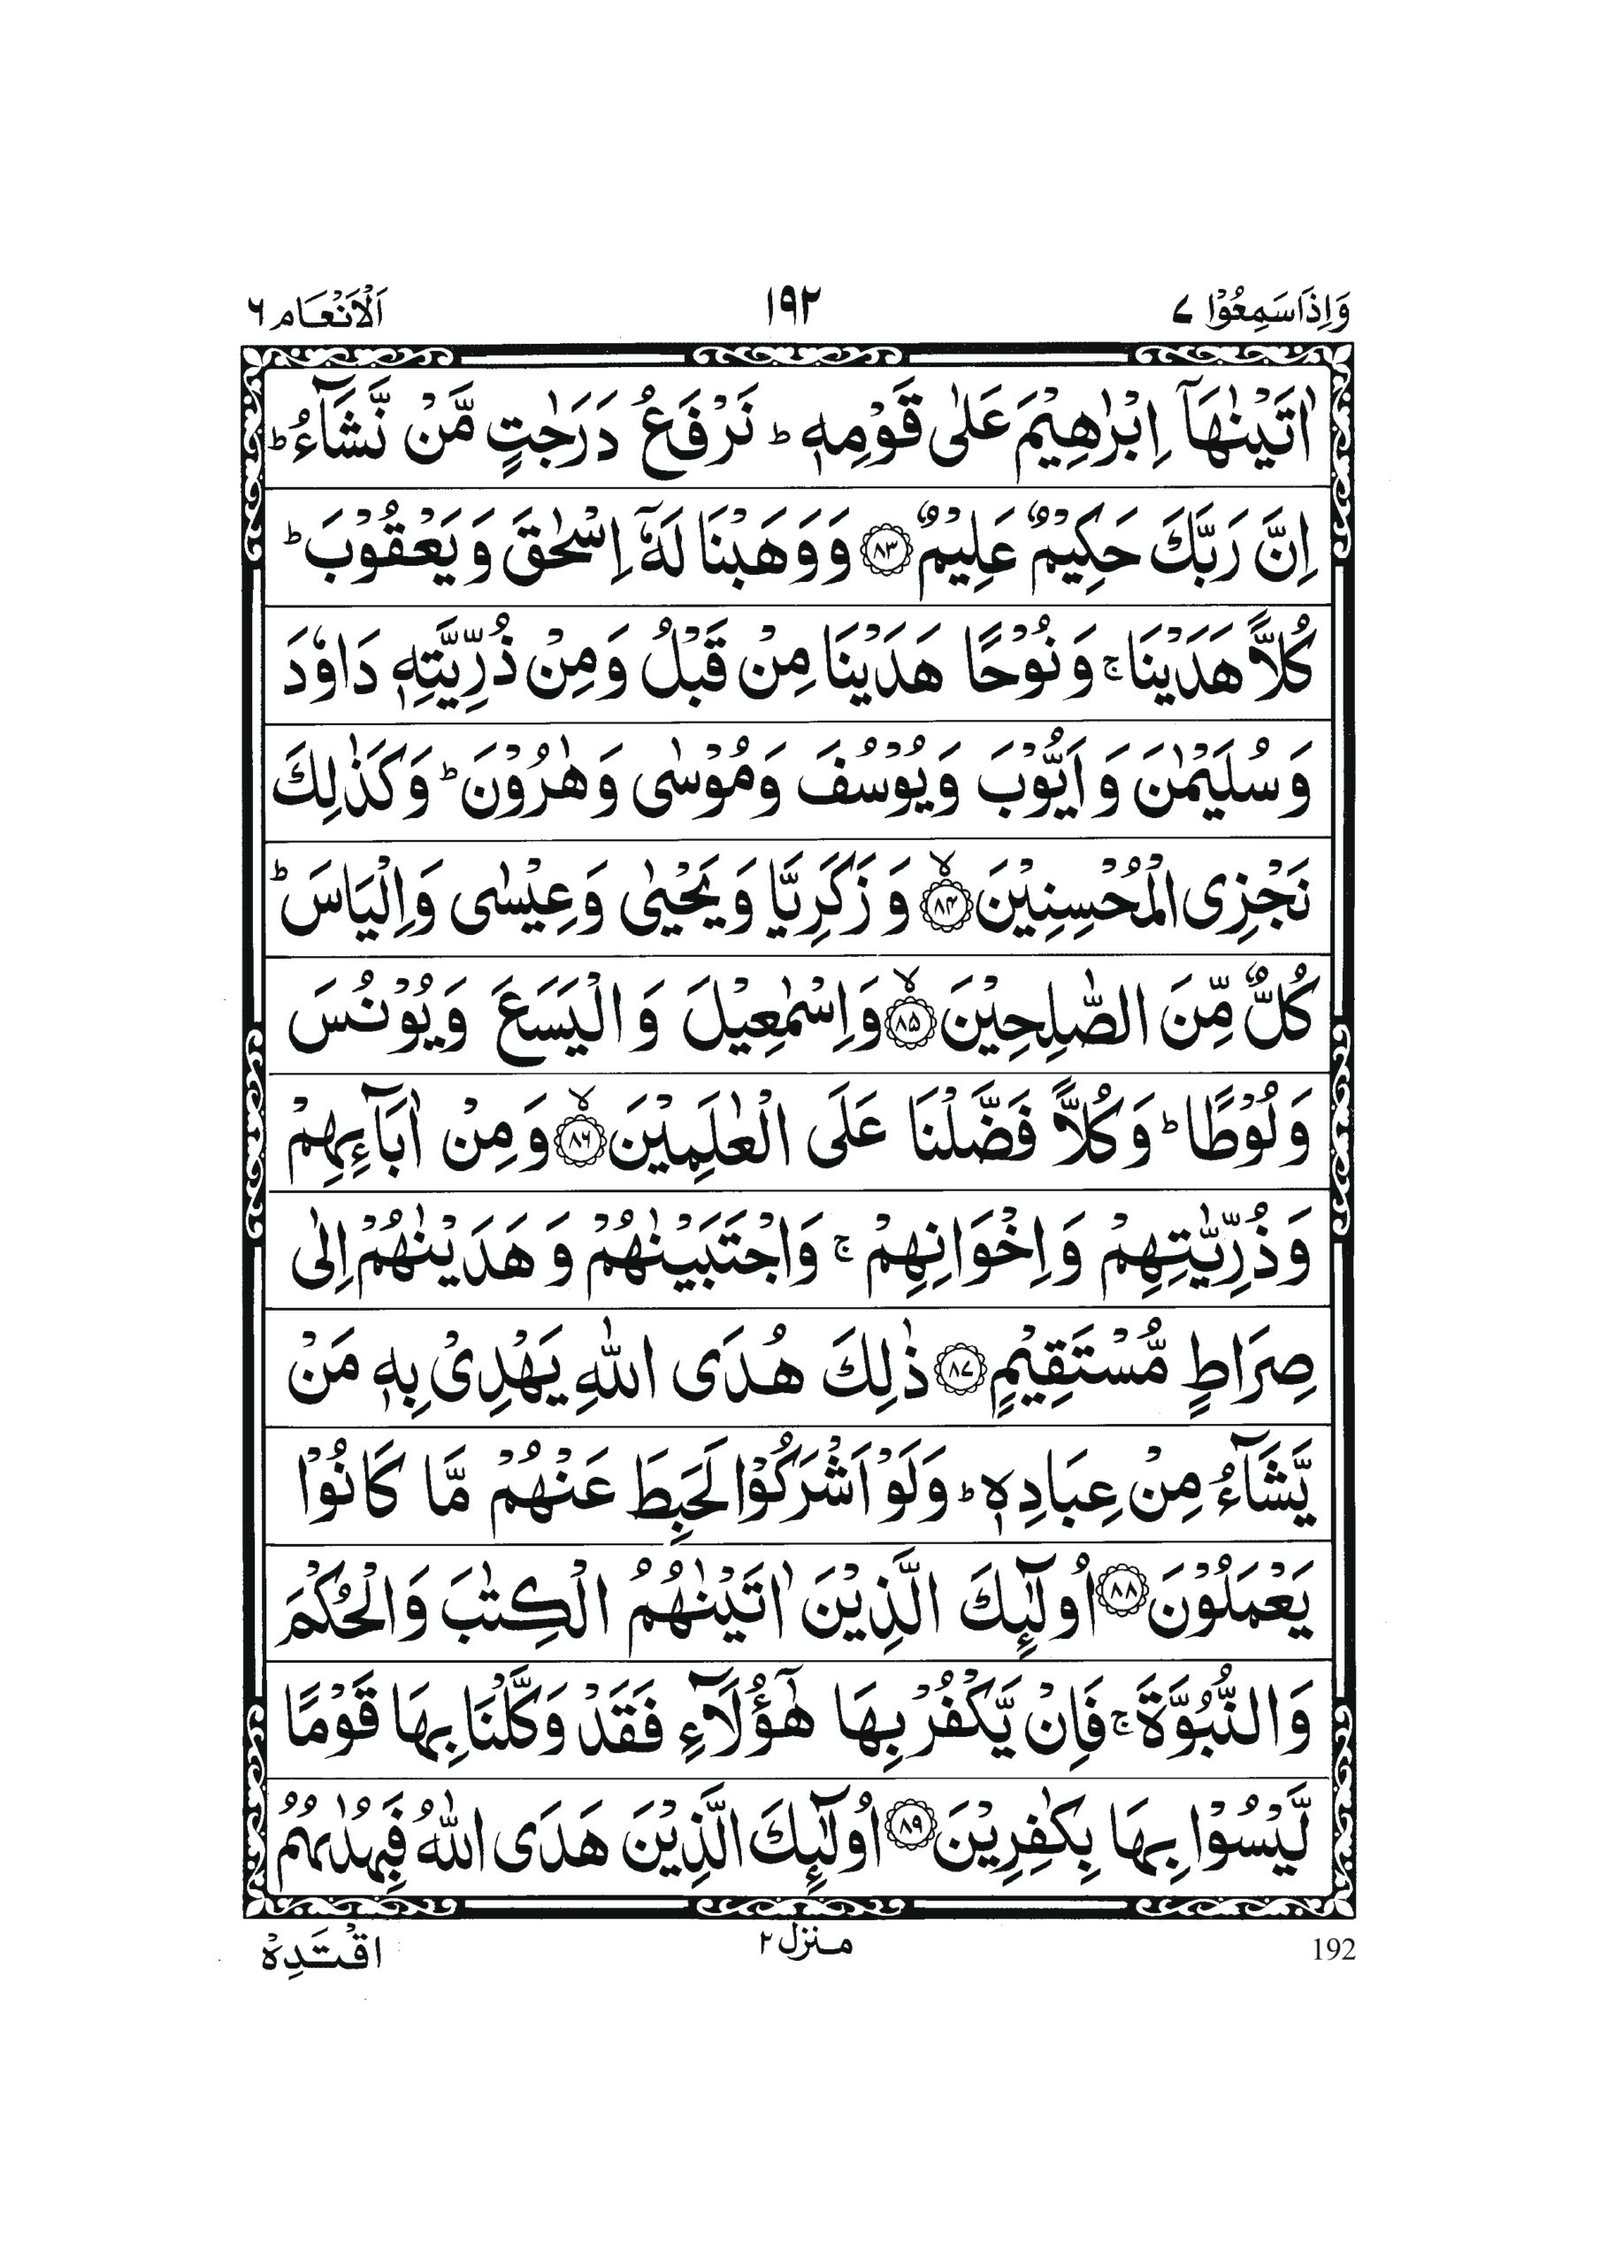 وَاِذَاسَمِعُوْا ٧
١٩٢
اَلْاَنْعَام ٦
اٰتَيْنٰهَاۤ اِبْرٰهِيْمَ عَلٰى قَوْمِهٖ ؕ نَرْفَعُ دَرَجٰتٍ مَّنْ نَّشَآءُ ؕ
اِنَّ رَبَّكَ حَكِيْمٌ عَلِيْمٌ ﴿٨٣﴾ وَوَهَبْنَا لَهٗۤ اِسْحٰقَ وَيَعْقُوْبَ ؕ
كُلًّا هَدَيْنَا ۚ وَنُوْحًا هَدَيْنَا مِنْ قَبْلُ وَمِنْ ذُرِّيَّتِهٖ دَاوٗدَ
وَسُلَيْمٰنَ وَاَيُّوْبَ وَيُوْسُفَ وَمُوْسٰى وَهٰرُوْنَ ؕ وَكَذٰلِكَ
نَجْزِى الْمُحْسِنِيْنَ ۙ﴿٨٤﴾ وَزَكَرِيَّا وَيَحْيٰى وَعِيْسٰى وَاِلْيَاسَ ؕ
كُلٌّ مِّنَ الصّٰلِحِيْنَ ۙ﴿٨٥﴾ وَاِسْمٰعِيْلَ وَالْيَسَعَ وَيُوْنُسَ
وَلُوْطًا ؕ وَكُلًّا فَضَّلْنَا عَلَى الْعٰلَمِيْنَ ۙ﴿٨٦﴾ وَمِنْ اٰبَآءِهِمْ
وَذُرِّيّٰتِهِمْ وَاِخْوَانِهِمْ ۚ وَاجْتَبَيْنٰهُمْ وَهَدَيْنٰهُمْ اِلٰى
صِرَاطٍ مُّسْتَقِيْمٍ ﴿٨٧﴾ ذٰلِكَ هُدَى اللّٰهِ يَهْدِىْ بِهٖ مَنْ
يَّشَآءُ مِنْ عِبَادِهٖ ؕ وَلَوْ اَشْرَكُوْا لَحَبِطَ عَنْهُمْ مَّا كَانُوْا
يَعْمَلُوْنَ ﴿٨٨﴾ اُولٰٓئِكَ الَّذِيْنَ اٰتَيْنٰهُمُ الْكِتٰبَ وَالْحُكْمَ
وَالنُّبُوَّةَ ۚ فَاِنْ يَّكْفُرْ بِهَا هٰٓؤُلَآءِ فَقَدْ وَكَّلْنَا بِهَا قَوْمًا
لَّيْسُوْا بِهَا بِكٰفِرِيْنَ ﴿٨٩﴾ اُولٰٓئِكَ الَّذِيْنَ هَدَى اللّٰهُ فَبِهُدٰىهُمُ
192
منزل ٢
اقْتَدِهْ